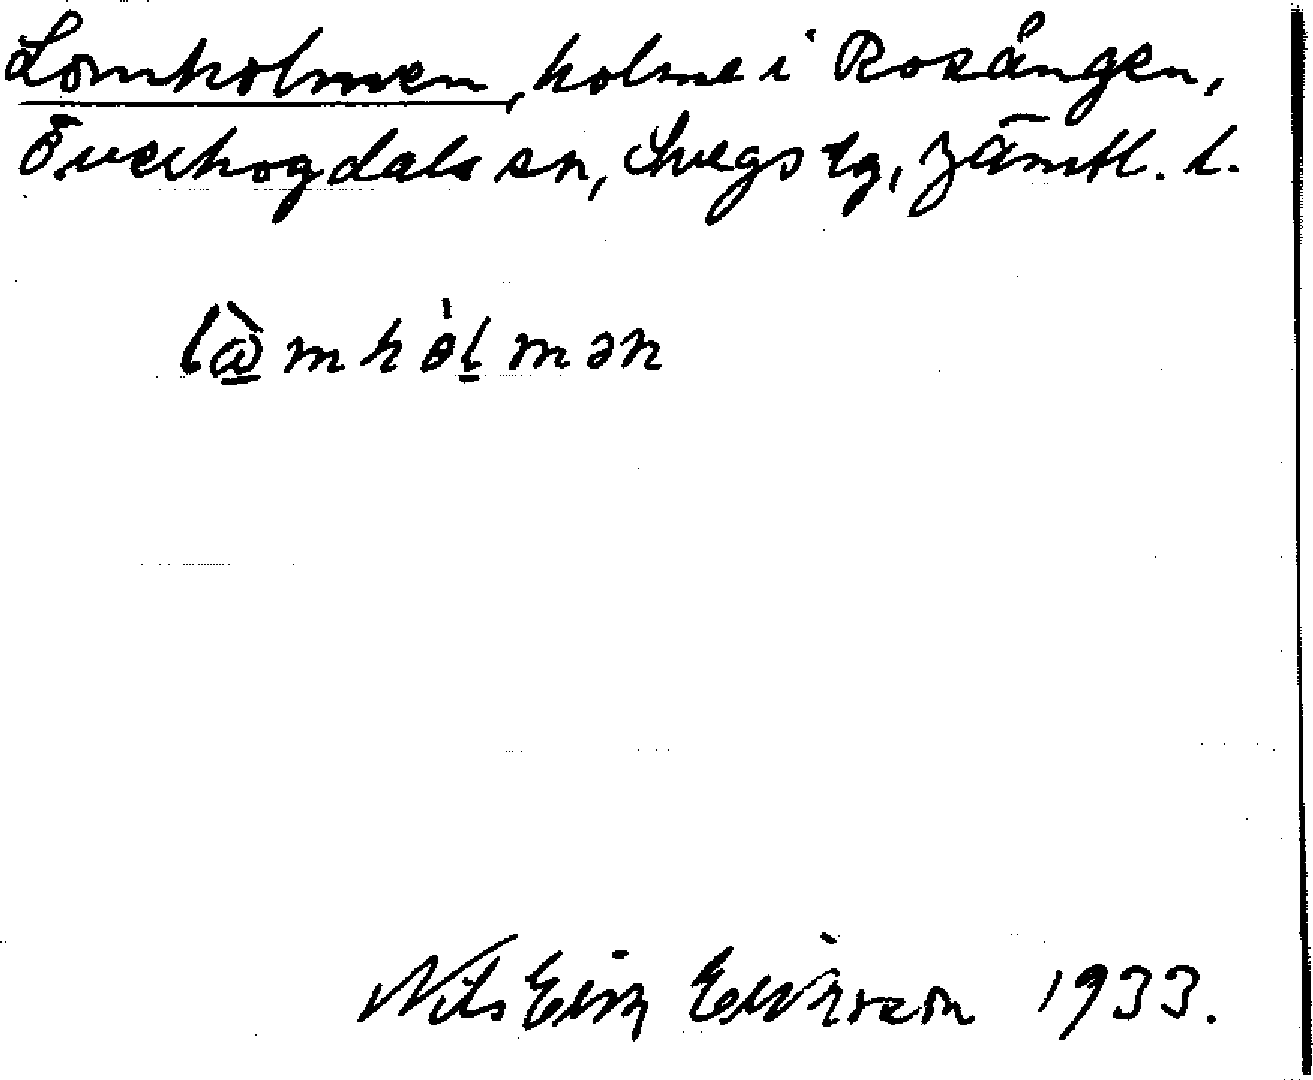 Lomholmen, holme i Rosången,
Överhogdals sn, Svegs tg, Jämtl. l.
lòmhòlmən
Nils Eric 1933.